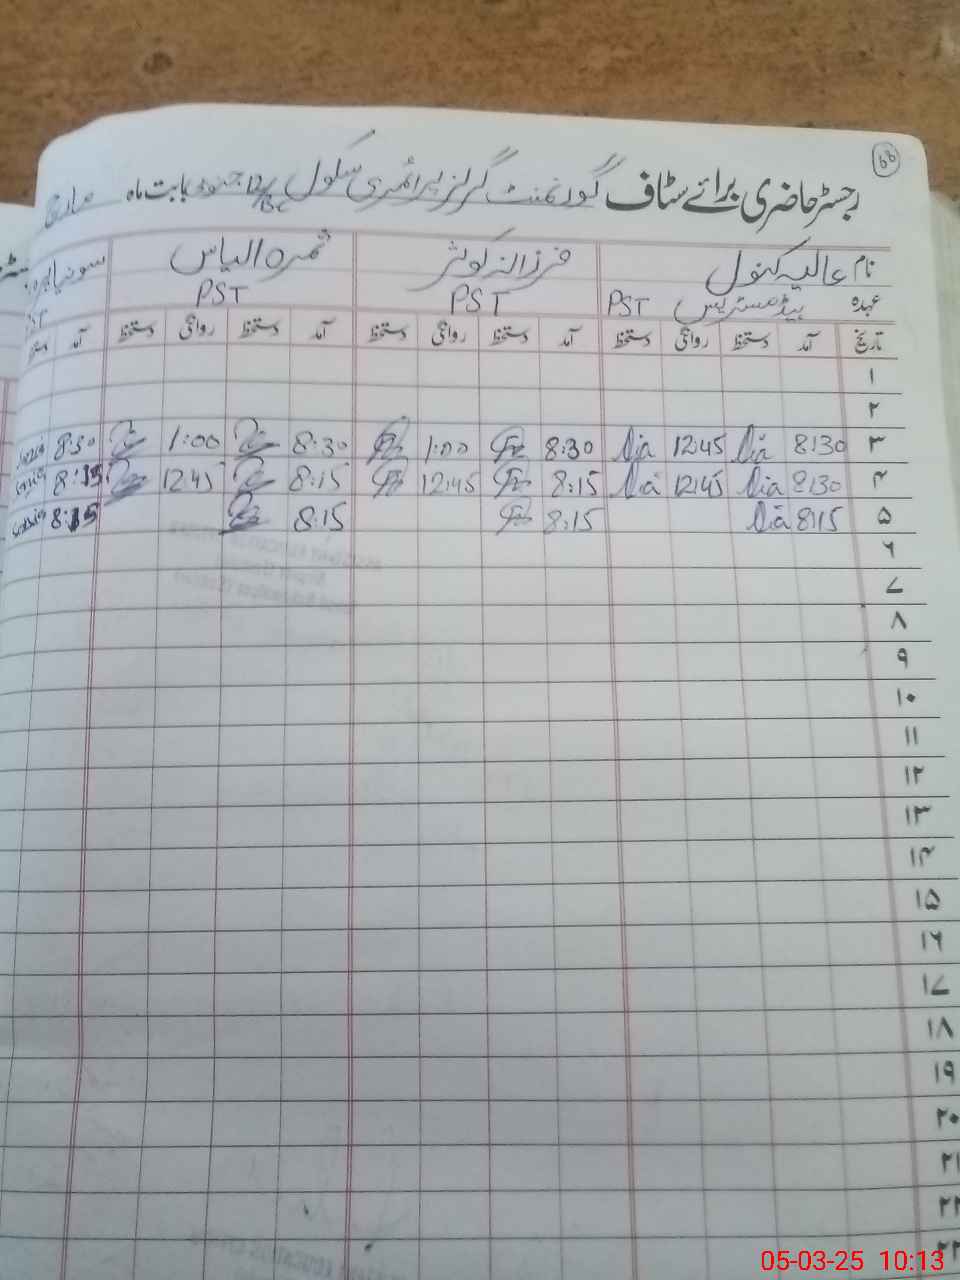 68
رجسٹر حاضری برائے سٹاف گورنمنٹ گرلز پرائمری سکول بابت ماہ مارچ
نام عالیہ کنول فرزانہ کوثر ثمرہ الیاس سونیا
عہدہ ہیڈمسٹریس PST PST PST
تاریخ آمد دستخط روانگی دستخط آمد دستخط روانگی دستخط آمد دستخط روانگی دستخط آمد
۱
۲
۳ 8:30 12:45 8:30 1:00 8:30 1:00 8:30
۴ 8:30 12:45 8:15 12:45 8:15 12:45 8:15
۵ 8:15 8:15 8:15 8:15
۶
۷
۸
۹
۱۰
۱۱
۱۲
۱۳
۱۴
۱۵
۱۶
۱۷
۱۸
۱۹
۲۰
۲۱
۲۲
۲۳
05-03-25 10:13